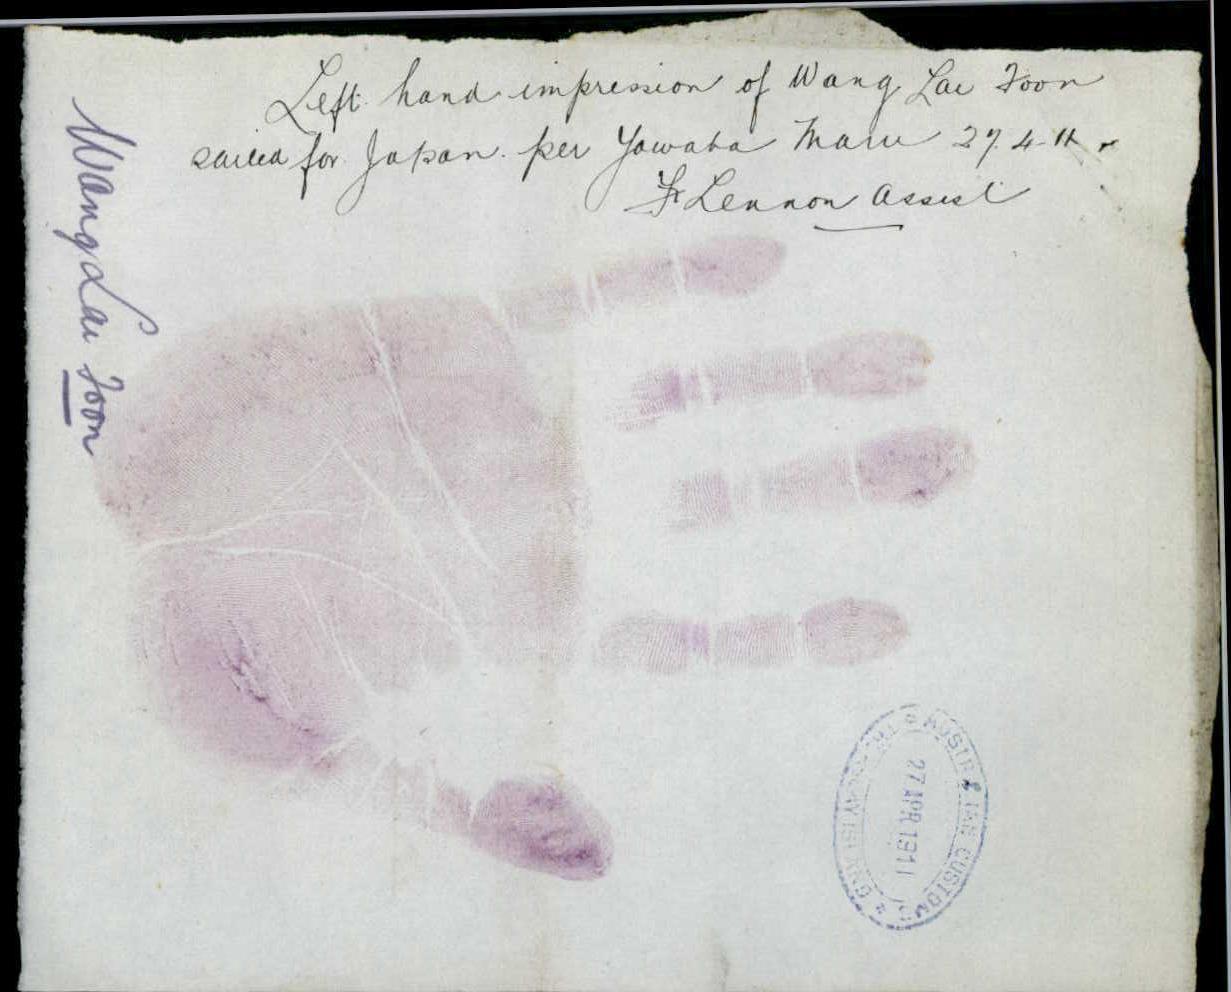 Left hand impression of Wang Lai Foon
sailed for Japan per Yawata Maru 27.4.11
F Lennon Assist
Wang Lai Foon
AUSTRALIAN CUSTOMS
27 APR 1911
THURSDAY ISLAND